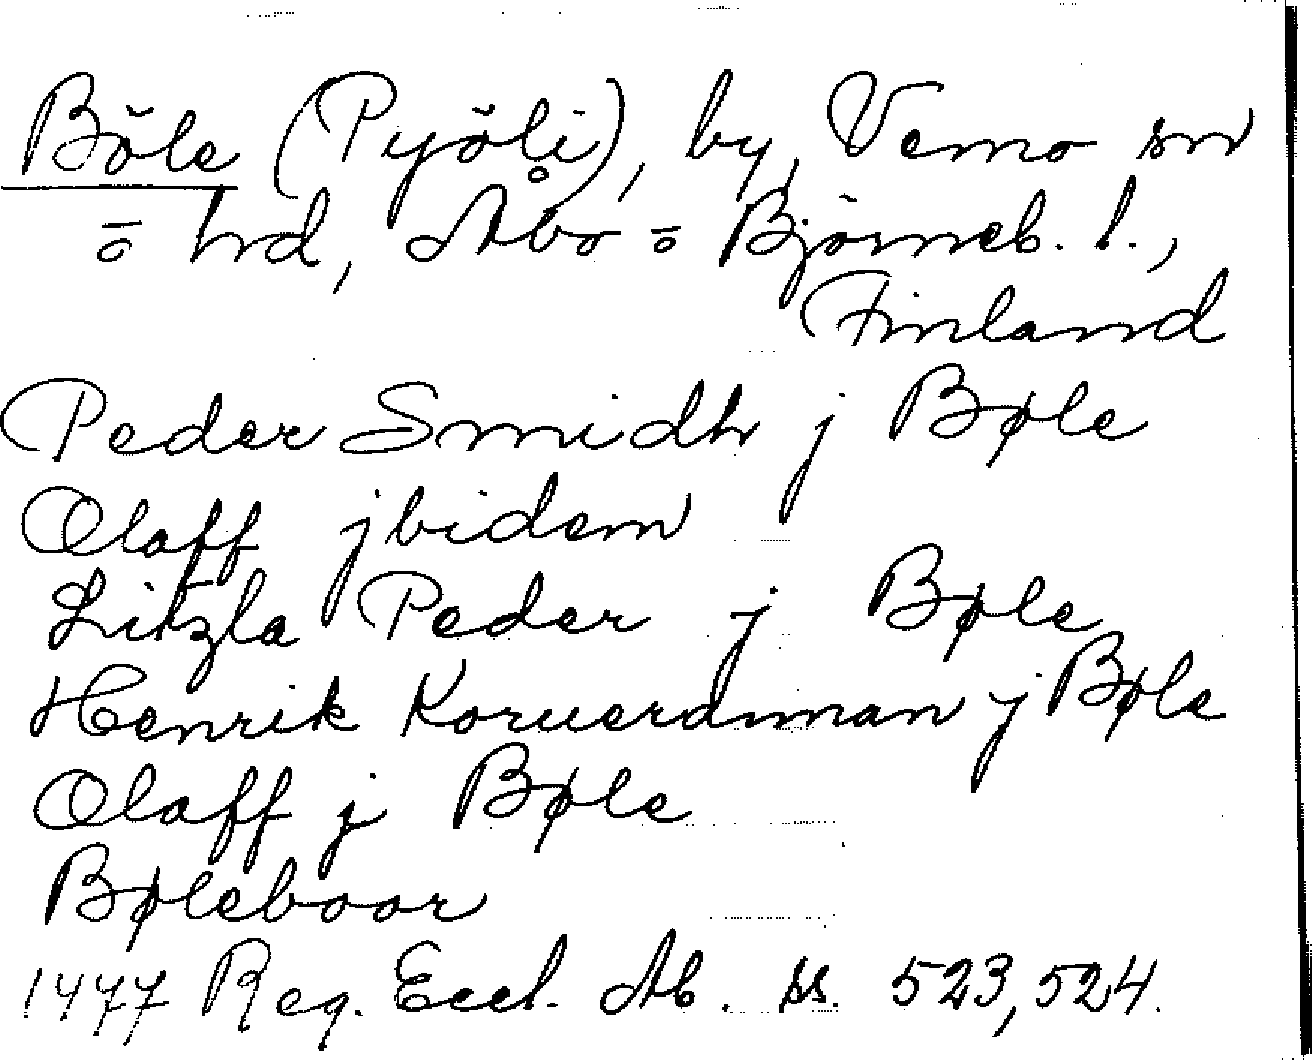 Böle (Pyöli), by, Vemo sn
o hd, Åbo o Björneb. l.,
Finland
Peder Smidh j Bøle
Olaff jbidem
Litzla Peder j Bøle
Henrik Koruerdnman j Bøle
Olaff j Bøle
Bøleboar
1477 Reg. Eccl. Ab. ss. 523, 524.